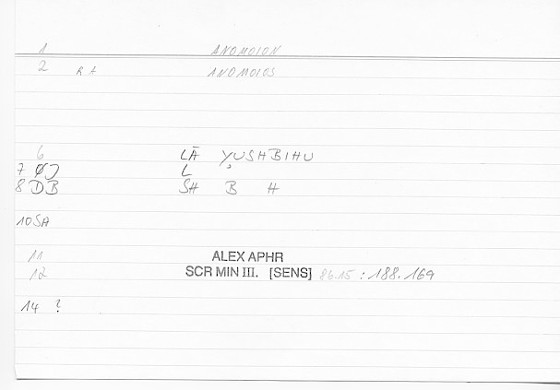 1 ANOMOION
2 R1 ANOMOIOS
6 LĀ YUSHBIHU
7 ØJ L ʾ
8 DB SH B H
10 SA
11 ALEX APHR
12 SCR MIN III. [SENS] 86.15 : 188.169
14 ?